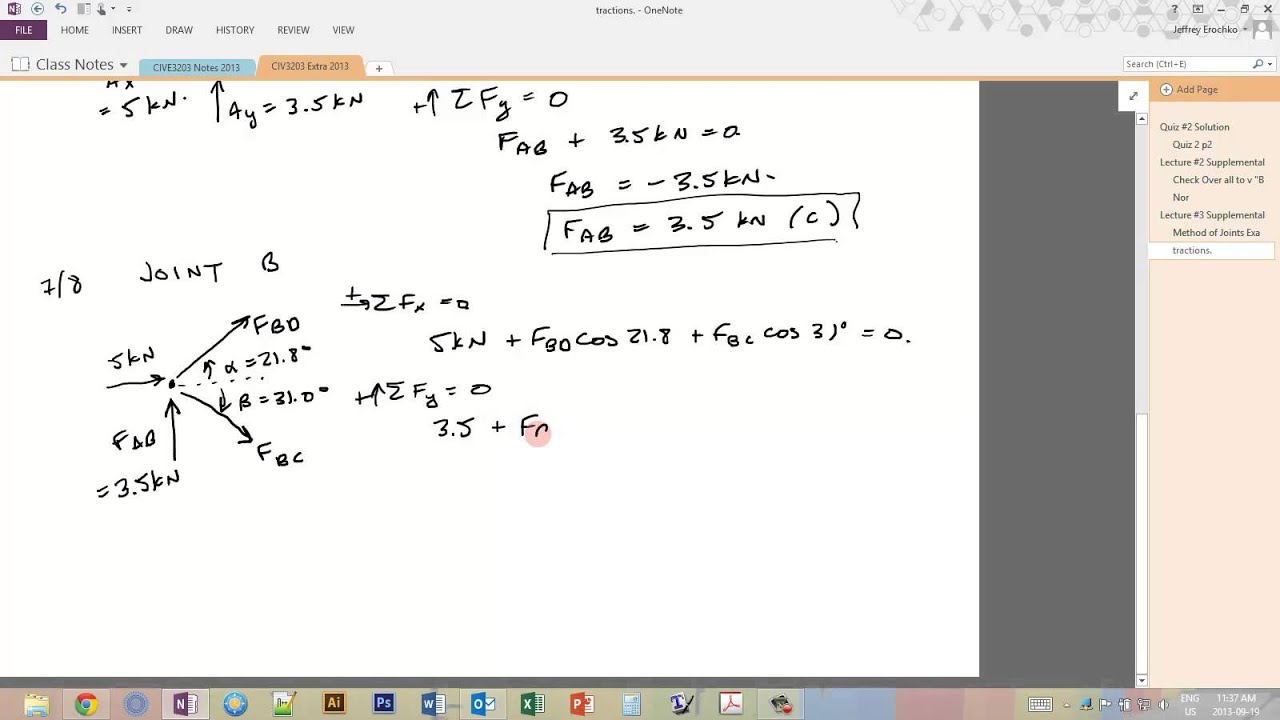 tractions. - OneNote
FILE HOME INSERT DRAW HISTORY REVIEW VIEW
Jeffrey Erochko
Class Notes
CIVE3203 Notes 2013
CIV3203 Extra 2013
Search (Ctrl+E)
Add Page
Quiz #2 Solution
Quiz 2 p2
Lecture #2 Supplemental
Check Over all to v "B
Nor
Lecture #3 Supplemental
Method of Joints Exa
tractions.
Ax
= 5 kN.
Ay = 3.5 kN
+↑ ΣFy = 0
FAB + 3.5 kN = 0
FAB = -3.5 kN.
FAB = 3.5 kN (C)
7/8 JOINT B
FBD
5kN
α = 21.8°
β = 31.0°
FAB
= 3.5kN
FBC
+→ ΣFx = 0
5kN + FBD cos 21.8 + FBC cos 31° = 0.
+↑ ΣFy = 0
3.5 + F
Ai
Ps
ENG
US
11:37 AM
2013-09-19